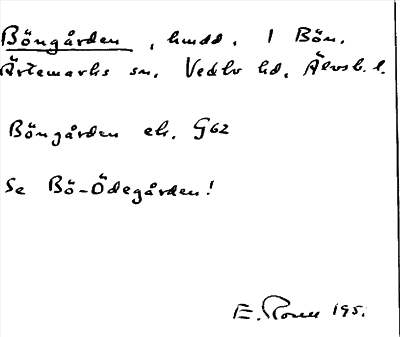 Böngården, hmdd. 1 Bön.
Ärtemarks sn, Vedbo hd, Älvsb. l.
Böngården ek. G62
Se Bö-Ödegården!
E. 195.